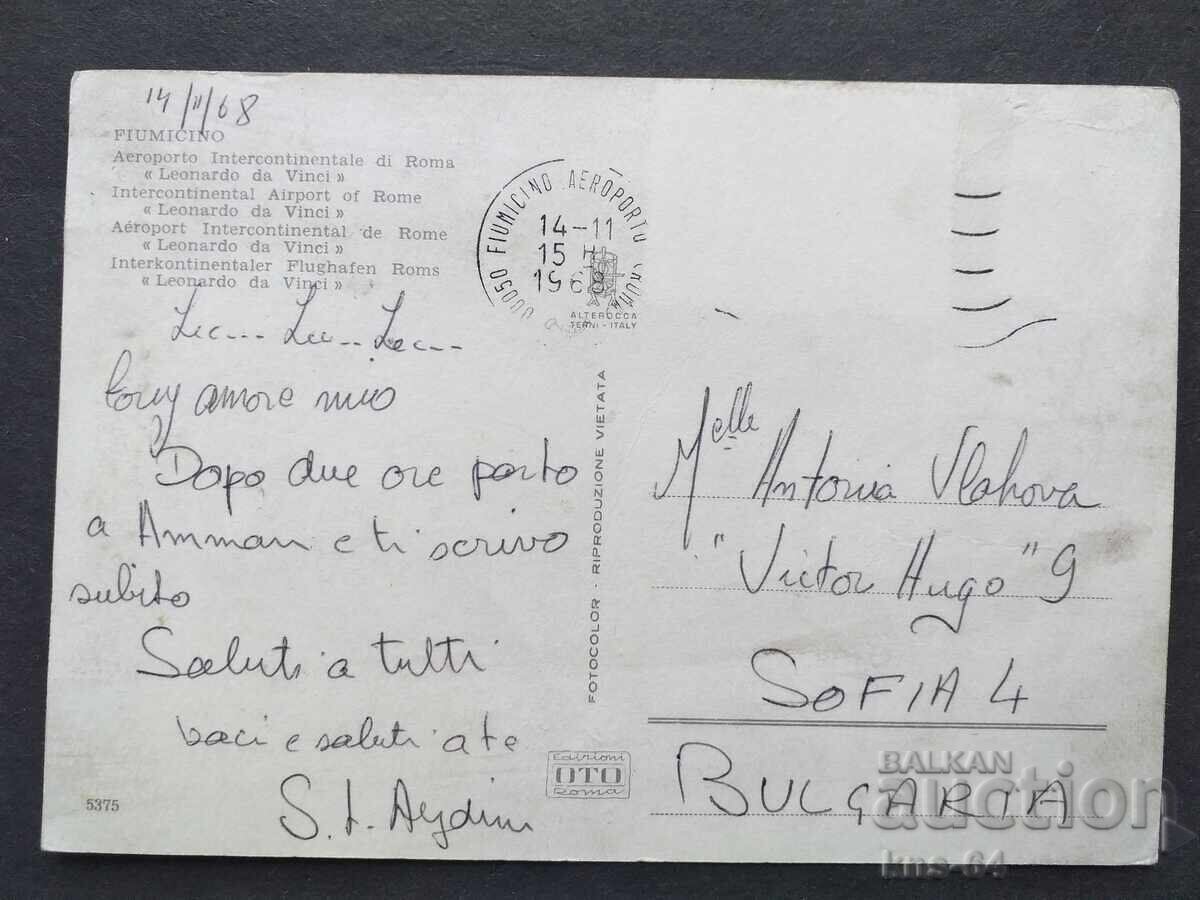 14/11/68
FIUMICINO
Aeroporto Intercontinentale di Roma
« Leonardo da Vinci »
Intercontinental Airport of Rome
« Leonardo da Vinci »
Aéroport Intercontinental de Rome
« Leonardo da Vinci »
Interkontinentaler Flughafen Roms
« Leonardo da Vinci »
amore mio
Dopo due ore parto
a Amman e ti scrivo
subito
Saluti a tutti
baci e saluti a te
S. Aydin
5375
00050 FIUMICINO AEROPORTO
14-11
15
1968
ALTEROCCA
TERNI - ITALY
FOTOCOLOR - RIPRODUZIONE VIETATA
Edizioni
OTO
Roma
Melle Antonia Vlahova
"Victor Hugo" 9
SOFIA 4
BULGARIA
BALKAN
auction
kns-64